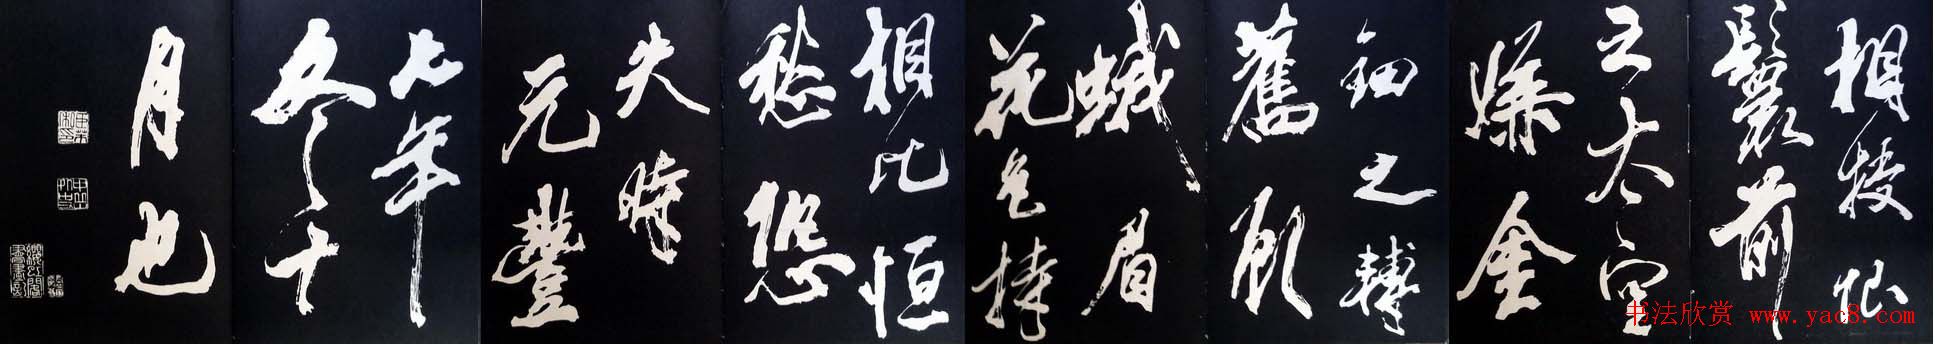 相授恨
鬟前
之太空
嫌金
鈿之轉
舊顧
蛾眉
花色持
相比恒
愁恐
失時
元豐
七年
冬十
月也
书法欣赏 www.yac8.com